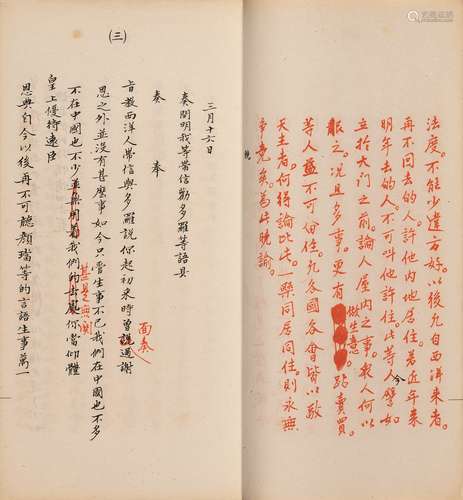 法度。不能少違方好。以後凡自西洋來者。
再不回去的人許他内地居住。若近年來
今
明年去的人不可叫他許住。此等人譬如
立於大门之前。論人屋内之事。衆人何以
服之。况且多事。更有做生意。跕賣買
等人益不可留住。凡各國各會皆以敬
天主者。何得論比此。一槩同居同住。則永無
争竞矣。為此曉諭。
(三)
三月十六日
奏聞明我等帶信勸多羅等語具
奏 奉
旨教西洋人帶信與多羅說你起初來時曾說過謝
面奏
恩之外並沒有甚麽事如今只管生事不已我們在中國也不多
不在中國也不少並無用着我們的去處你當仰體
甚是無關
皇上優待遠臣
恩典自今以後再不可聽顏璫等的言語生事萬一